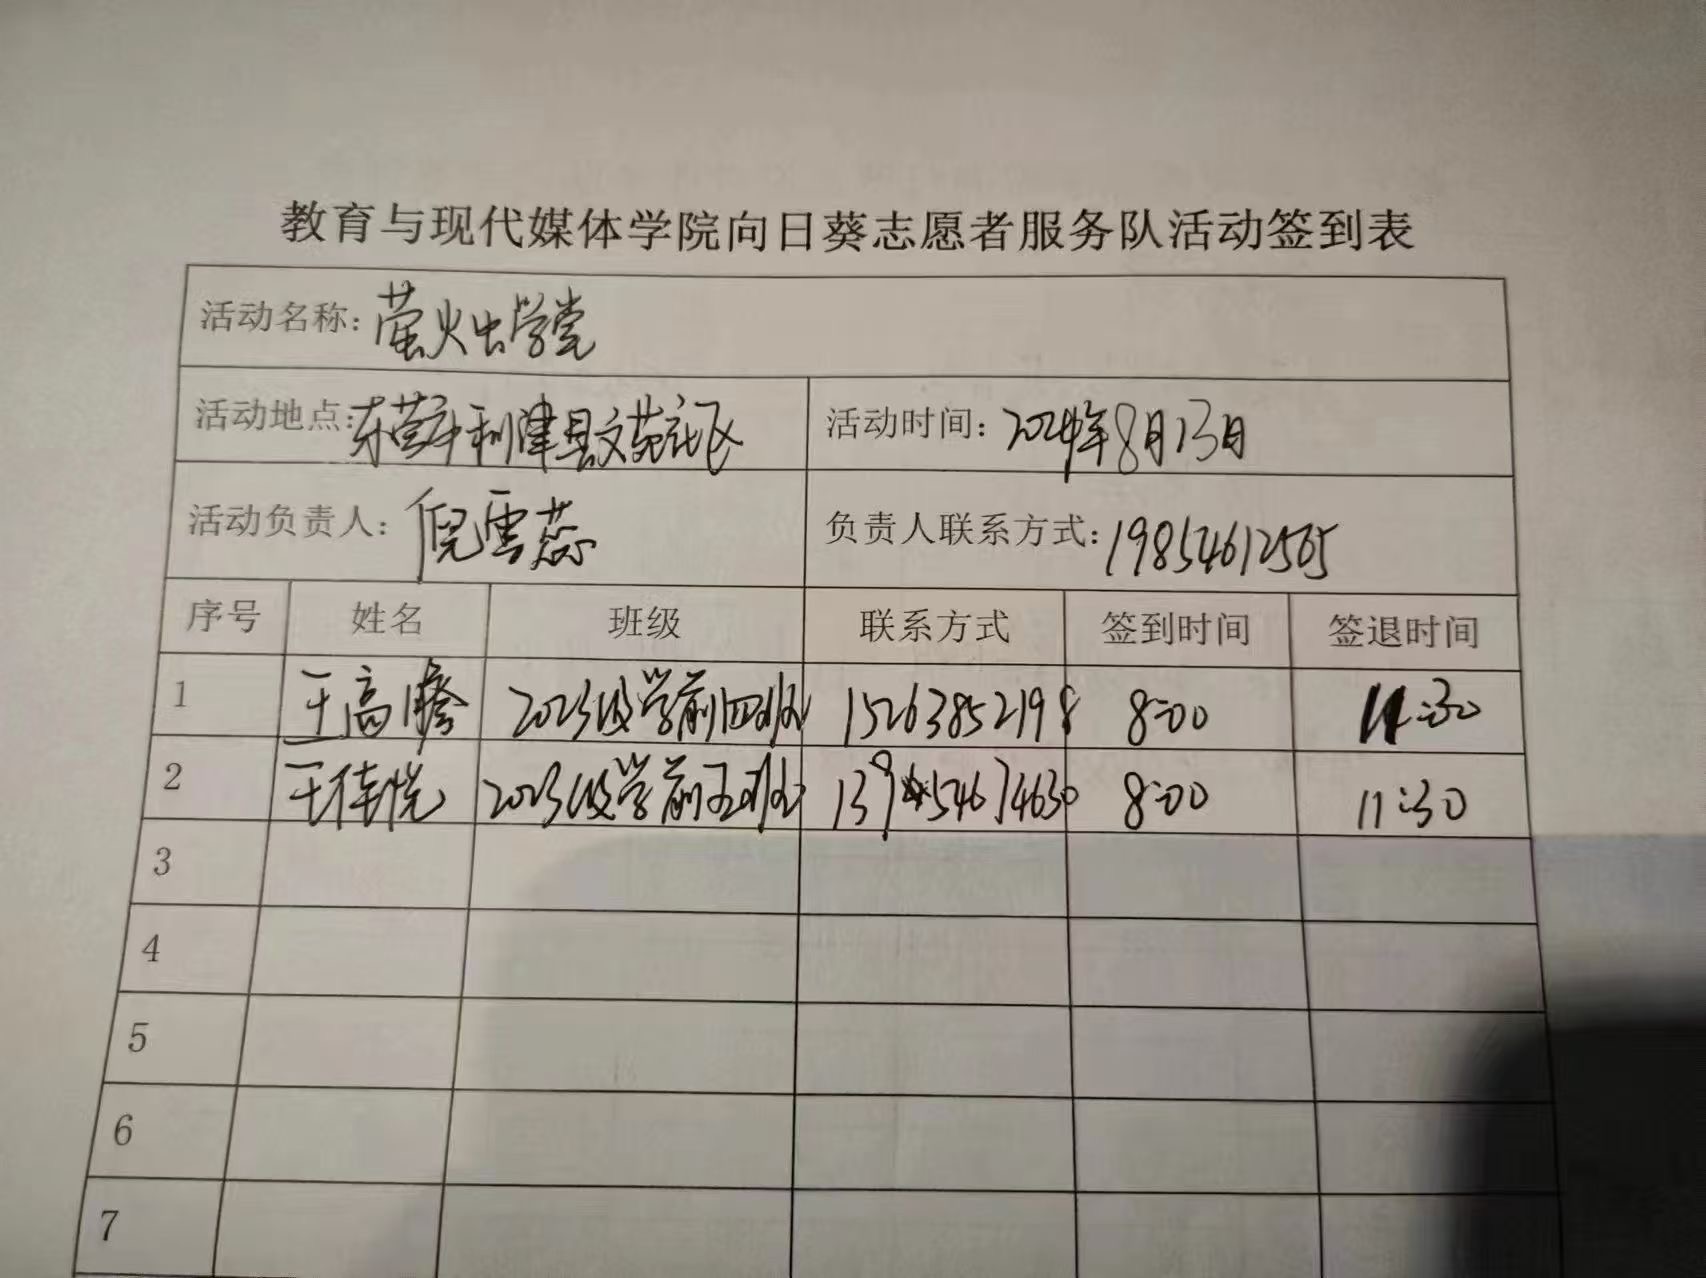 教育与现代媒体学院向日葵志愿者服务队活动签到表
活动名称：萤火虫学堂
活动地点：东营市利津县文苑社区 活动时间：2024年8月13日
活动负责人：倪雪蕊 负责人联系方式：19854612565
序号 姓名 班级 联系方式 签到时间 签退时间
1 王高 2023级学前四班 15263852198 8:00 11:30
2 王佳悦 2023级学前五班 8:00 11:30
3
4
5
6
7